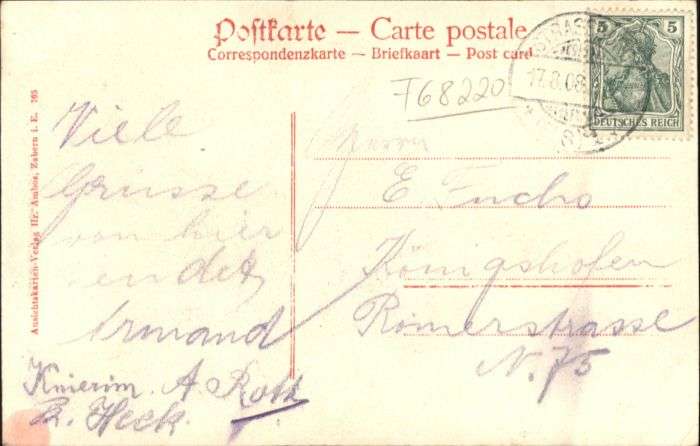 Postkarte — Carte postale
Correspondenzkarte — Briefkaart — Post card
5 5
DEUTSCHES REICH
17.8.08
F68220
Ansichtskarten-Verlag Hr. Ambos, Zabern i. E. 765
Viele
Grüsse
von hier
endet
Armand
Knierim. A. Roth
R. Heck.
Herrn
E. Fuchs
Königshofen
Römerstrasse
N. 75